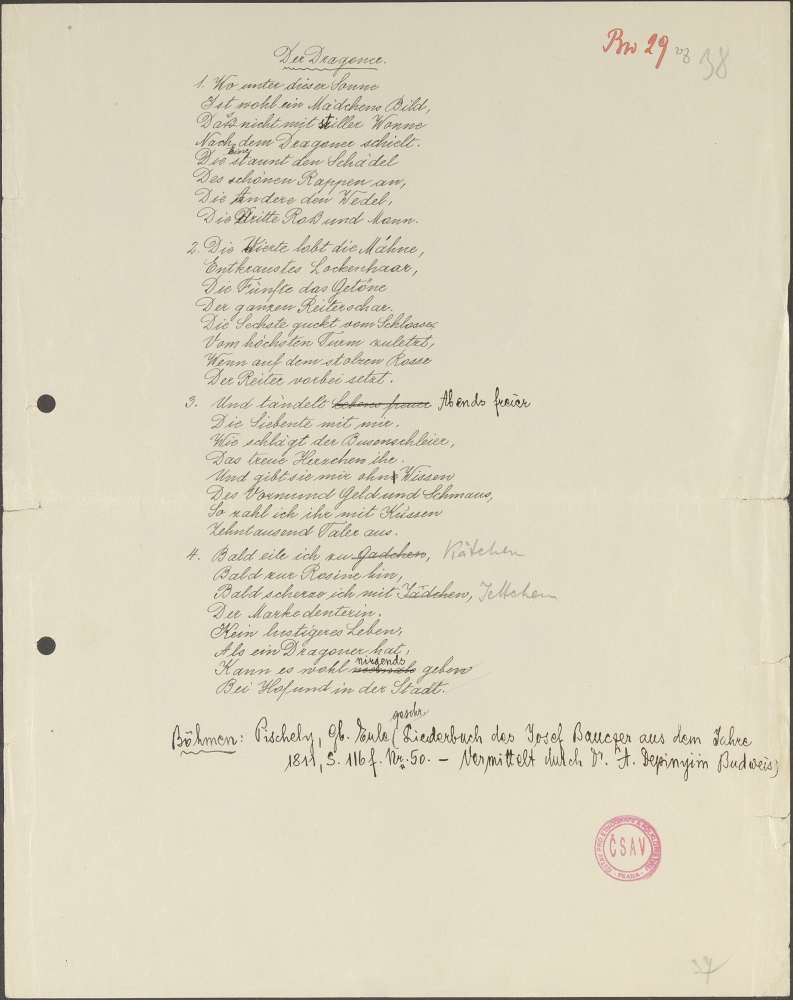 Bw 29 38
Der Dragoner.
1. Wo unter dieser Sonne
Ist wohl ein Mädchens Bild,
Das nicht mit stiller Wonne
Nach dem Dragoner schielt.
Die Eine staunt den Schädel
Des schönen Rappen an,
Die Andere den Wedel,
Die Dritte Roß und Mann.
2. Die Vierte lobt die Mähne,
Entkraustes Lockenhaar,
Die Fünfte das Getöne
Der ganzen Reiterschar.
Die Sechste guckt vom Schlosse,
Vom höchsten Turm zuletzt,
Wenn auf dem stolzen Rosse
Der Reiter vorbei setzt.
3. Und tändelt Abends freier
Die Siebente mit mir.
Wie schlägt der Busenschleier,
Das treue Herzchen ihr.
Und gibt sie mir ohn Wissen
Des Vormund Geld und Schmaus,
So zahl ich ihr mit Küssen
Zehntausend Taler aus.
4. Bald eile ich zu Gadchen, Kätchen
Bald zur Rosine hin,
Bald scherze ich mit Jädchen, Jettchen
Der Markedenterin.
Kein lustigeres Leben,
Als ein Dragoner hat,
Kann es wohl nirgends geben
Bei Hof und in der Stadt.
geschr.
Böhmen: Pischely, Gb. Eule (Liederbuch des Josef aus dem Jahre
1811, S. 116 f. Nr. 50. – Vermittelt durch Dr. A. Depinyi in Budweis)
ČSAV
PRAHA
37